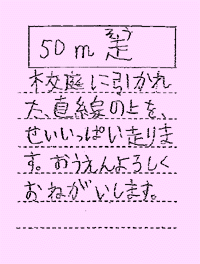 50m走
そう
校庭に引かれ
た、直線の上を、
せいいっぱい走りま
す。おうえんよろしく
おねがいします。